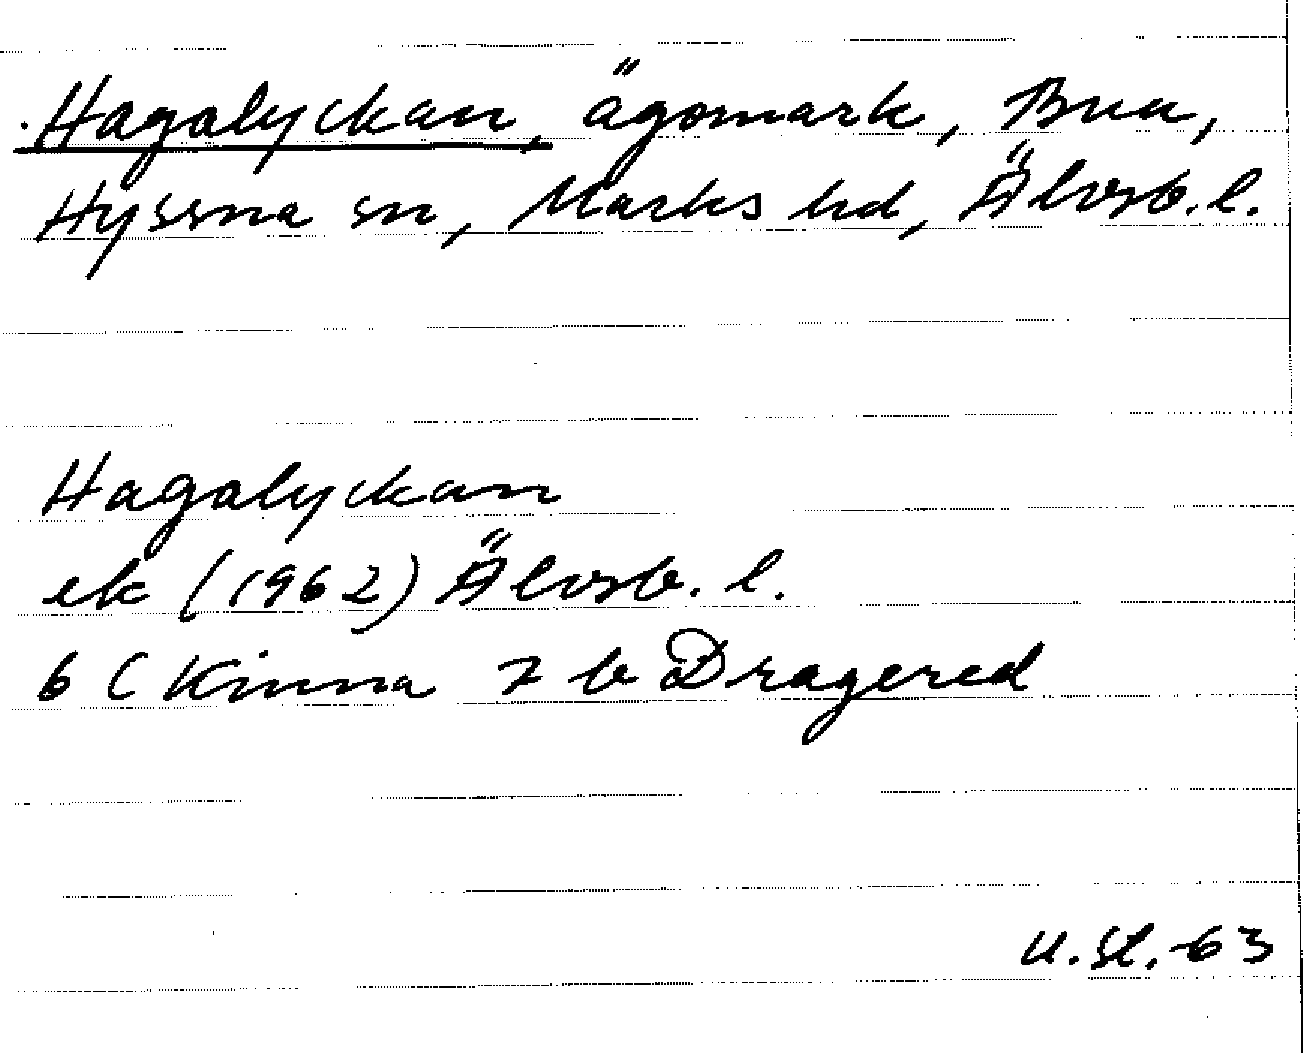 Hagalyckan, ägomark, Bua,
Hyssna sn, Marks hd, Älvsb. l.
Hagalyckan
ek (1962) Älvsb. l.
6 C Kinna 7 b Dragered
U. St. -63